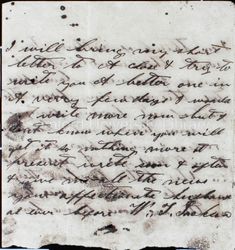 I will bring my short
letter to A close & try to
writ you A better one in
A very few days I would
write more now but I
dont know where you will
get it so nothing more at
present with
and the news
your affectionate
as ever before